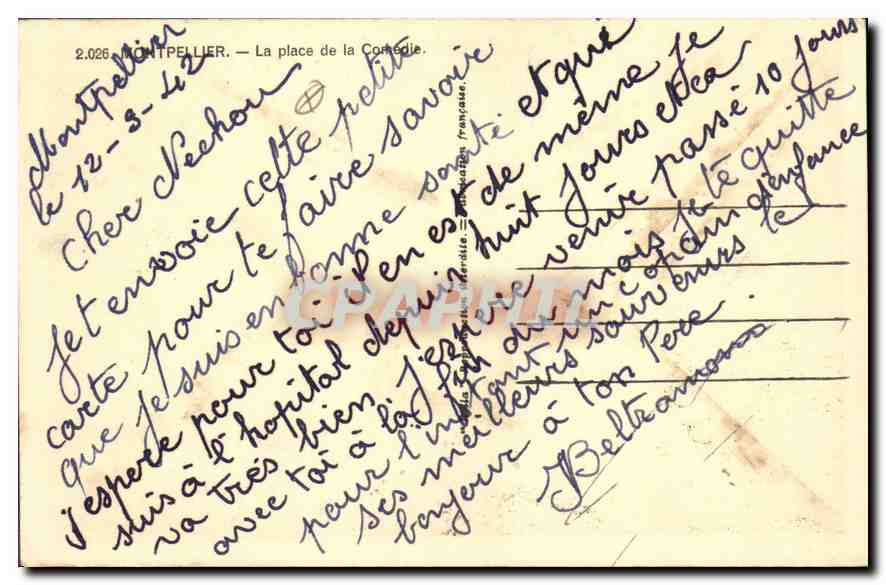 2.026. MONTPELLIER. — La place de la Comédie.
Montpellier
le 12-3-42
Cher Nechou
Je t envoie cette petite
carte pour te faire savoir
que je suis en bonne santé et que
j'espere pour toi il en est de même je
suis à l'hopital depuis huit jours et ca
va très bien J'espere venir passé 10 jours
avec toi à la fin du mois je te quitte
pour l'instant un copain d'enfance
ses meilleurs souvenirs le
bonjour à ton Pere.
J Beltramo
Reproduction interdite. = Fabrication française.
CPAPHIL